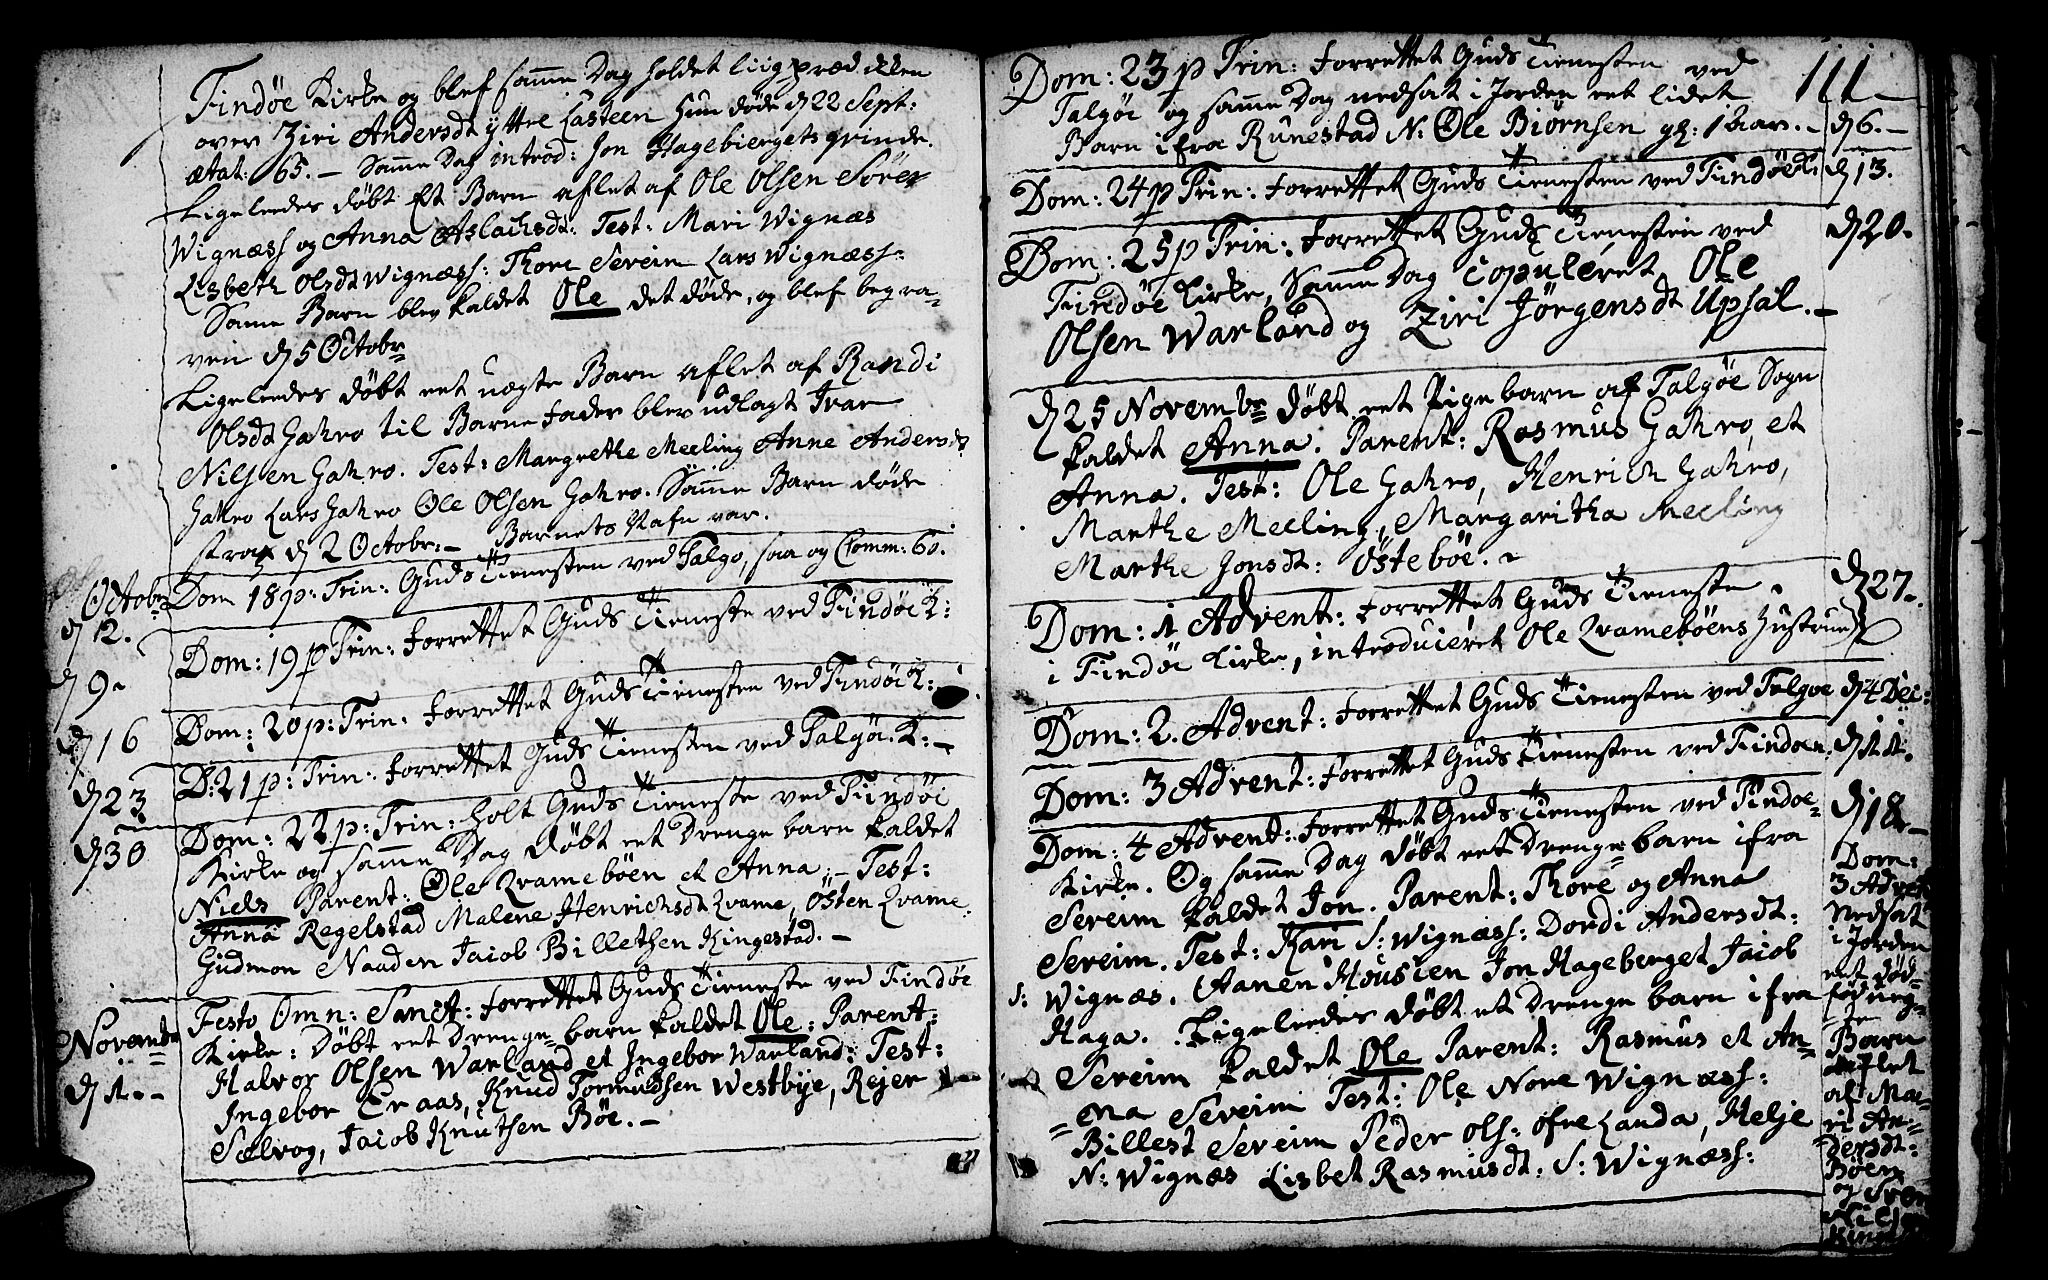 Findöe Kirke og blef samme Dag holdet liigprædicken
over Ziri Andersdt ÿttre Lasteen hun döde d 22 Sept:
ætat: 65. - Samme Dag introd: Jon Hagebiergets qvinde.
Ligeleedes döbt Et Barn aflet af Ole Olsen Sörer
Wignæss og Anna Aslachsdt: Test: Mari Wignæs
Lisbeth Olsdt Wignæss: Thore Sereim Lars Wignæss:
Samme Barn blev kaldet Ole det döde, og blef begra-
ven d 5 Octobr
Ligeleedes döbt eet uægte Barn aflet af Randi
Olsdt Hahro til Barne fader blev udlagt Ivar
Nilsen Hahro. Test: Margrethe Meeling Anne Andersd
Hahro Lars Hahro Ole Olsen Hahro. Samme Barn döde
strax d 2 Octobr: - Barnets Nafn var.
October Dom 18 p: Trin: Guds Tienesten ved Talgo, saa og Comm: 60.
d 2.
Dom: 19 p Trin: forrettet Guds Tieneste ved Findöe K:
d 9.
Dom: 20 p: Trin: forrettet Guds Tienesten ved Findöe K:
d 16
D: 21 p: Trin: forrettet Guds Tienesten ved Talgöe K: -
d 23
Dom: 22 p: Trin: holt Guds Tieneste ved Findöe
d 30
Kirke og samme Dag döbt eet Drenge barn kaldet
Niels Parent: Ole Qvameböen et Anna. - Test:
Anna Regelstad Malene Henrichsdt Qvame, Östen Qvame
Gudmon Naaden Jacob Billethsen Kingestad. -
Festo Omn: Sanct: forrettet Guds Tieneste ved Findöe
Novembr
Kirke: Döbt eet Drenge barn kaldet Ole: Parent:
d 1. -
Halvor Olsen Warland et Ingebor Warland: Test:
Ingebor Eraas, Knud Tormudsen Westbye, Rejer
Sælvog, Jacob Knutsen Böe. -
111
Dom: 23 p Trin: forrettet Guds Tienesten ved
Talgöe og samme Dag nedsat i Jorden eet lidet
Barn ifra Runestad N: Ole Biörnsen gl: 1 aar. - d 6. -
Dom: 24 p Trin: forrettet Guds Tienesten ved Findöe K: d 13.
Dom: 25 p Trin: forrettet Guds Tienesten ved d 20.
Findöe Kirke, Samme Dag copuleret Ole
Olsen Warland og Ziri Jörgensdt Upsal. -
d 25 Novembr döbt eet Pigebarn af Talgöe Sogn
kaldet Anna. Parent: Rasmus Hahro, et
Anna. Test: Ole Hahro, Henrich Hahro,
Marthe Meeling, Margaritha Meeling
Marthe Jonsdt: Östeböe.
Dom: 1 Advent: forrettet Guds Tieneste d 27.
i Findöe Kirke, introduceret Ole Qvameböens Hustrue
Dom: 2. Advent: forrettet Guds Tienesten ved Talgoe d 4 Dec:
Dom: 3 Advent: forrettet Guds Tienesten ved Findoe: d 11.
Dom: 4 Advent: forrettet Guds Tienesten ved Findoe- d 18. -
Kirke. Og samme Dag döbt eet Drenge barn ifra
Sereim kaldet Jon. Parent: Thore og Anna
Sereim. Test: Kari S: Wignæss: Dordi Andersdt:
S: Wignæs. Aanen Housken Jon Hageberget Jacob
Haga. Ligeleedes döbt et Drenge barn ifra
Sereim kaldet Ole Parent: Rasmus et An-
na Sereim Test: Ole Nore Wignæss:
Billest Sereim Peder Ols: öfre Landa, Helje
N: Wignæs Lisbet Rasmusdt: S: Wignæss:
Dom:
3 Advent
Nedsat
i Jorden
eet död-
föd uæg-
te
Barn
aflet
af Ma-
ri An-
dersdt:
Böen
og Sven